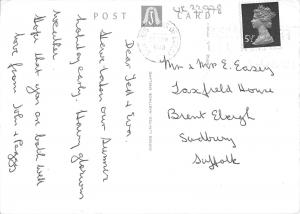 POST CARD
UK 33998
5½P
Dear Ted & Eva.
Have taken our Summer
holiday early. Having glorious
weather.
Hope that you are both well
love from John & Peggy
Mr & Mrs E. Easey
Saxfield House
Brent Eleigh
Sudbury
Suffolk